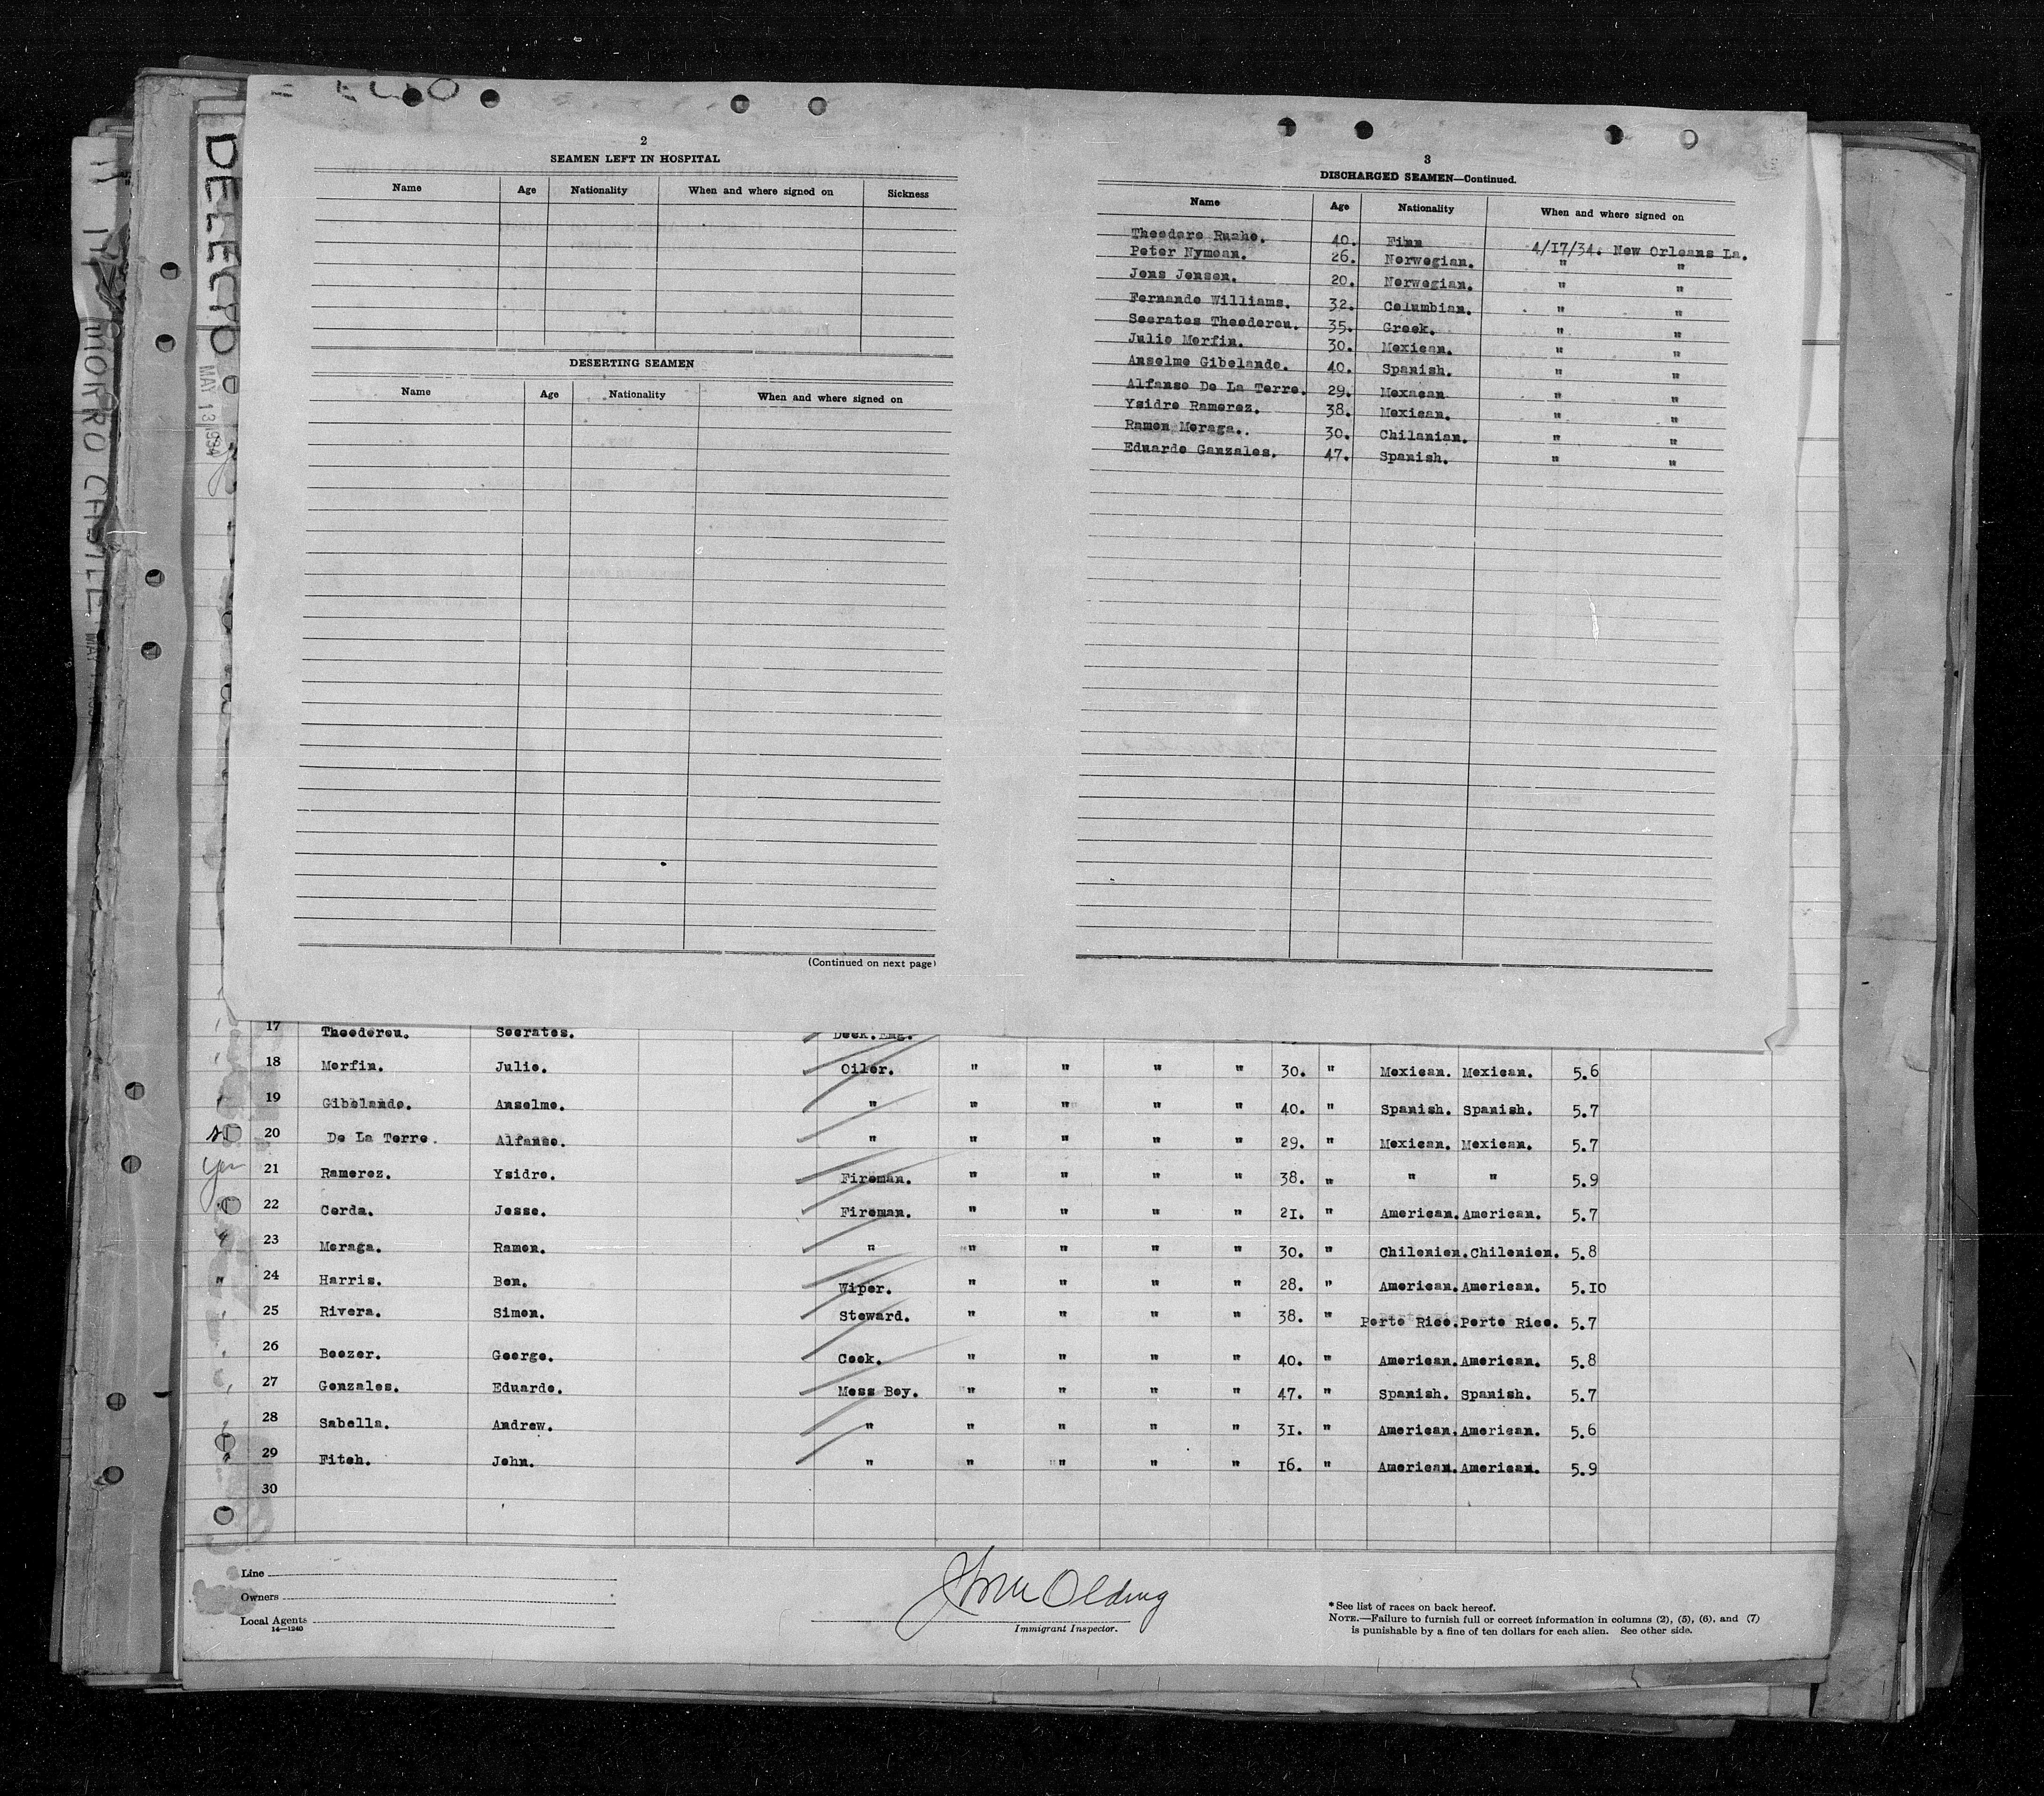 DELECTO
MAY 13 1934
MORRO CASTLE
MAY
2
SEAMEN LEFT IN HOSPITAL
Name Age Nationality When and where signed on Sickness
DESERTING SEAMEN
Name Age Nationality When and where signed on
(Continued on next page)
3
DISCHARGED SEAMEN—Continued.
Name Age Nationality When and where signed on
Theodore 40. Finn 4/17/34. New Orleans La.
Peter Nymoan. 26. Norwegian. " "
Jens Jensen. 20. Norwegian. " "
Fernando Williams. 32. Columbian. " "
Socrates Theoderou. 35. Greek. " "
Julio Morfin. 30. Mexican. " "
Anselmo Gibelando. 40. Spanish. " "
Alfanso De La Torre. 29. Mexacan " "
Ysidro Ramerez. 38. Mexican. " "
Ramon Moraga. 30. Chilanian. " "
Eduardo Ganzales. 47. Spanish. " "
17 Theoderou. Socrates. Deck.Eng.
18 Morfin. Julio. Oiler. " " " " 30. " Mexican. Mexican. 5.6
19 Gibelando. Anselmo. " " " " " 40. " Spanish. Spanish. 5.7
20 De La Torre. Alfanso. " " " " " 29. " Mexican. Mexican. 5.7
yes 21 Ramerez. Ysidro. Fireman. " " " " 38. " " " 5.9
22 Cerda. Jesse. Fireman. " " " " 21. " American. American. 5.7
23 Moraga. Ramon. " " " " " 30. " Chilenien. Chilenien. 5.8
24 Harris. Ben. Wiper. " " " " 28. " American. American. 5.10
25 Rivera. Simon. Steward. " " " " 38. " Porto Rico. Porto Rico. 5.7
26 Boozer. George. Cook. " " " " 40. " American. American. 5.8
27 Gonzales. Eduardo. Mess Boy. " " " " 47. " Spanish. Spanish. 5.7
28 Sabella. Andrew. " " " " " 31. " American. American. 5.6
29 Fitch. John. " " " " " 16. " American. American. 5.9
30
Line
Owners
Local Agents
14—1240
Olding
Immigrant Inspector.
*See list of races on back hereof.
NOTE.—Failure to furnish full or correct information in columns (2), (5), (6), and (7)
is punishable by a fine of ten dollars for each alien. See other side.